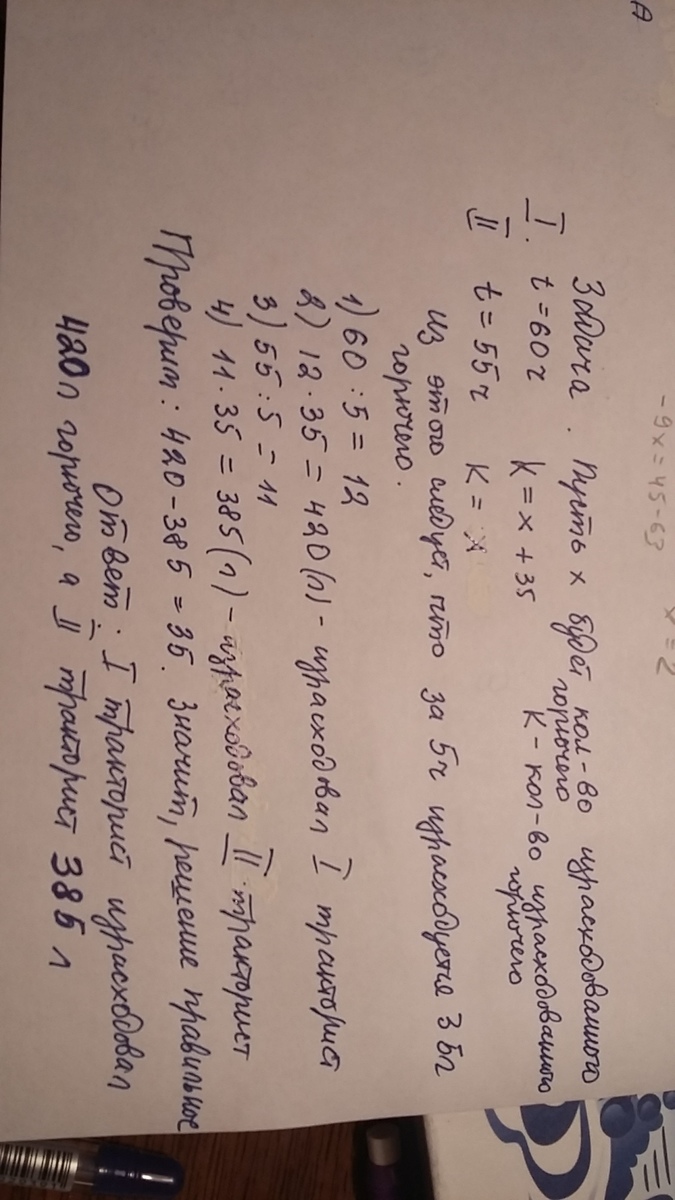 А
-9x=45-63
x=2
Задача. Пусть x будет кол-во израсходованного
горючего
I. t=60ч k=x+35 К-кол-во израсходованного
горючего
II t=55ч K=x
Из этого следует, что за 5ч израсходуется 35л
горючего.
1) 60:5=12
2) 12·35=420(л)-израсходовал I тракторист
3) 55:5=11
4) 11·35=385(л)-израсходовал II тракторист
Проверим: 420-385=35. Значит, решение правильное
Ответ: I тракторист израсходовал
420л горючего, а II тракторист 385 л